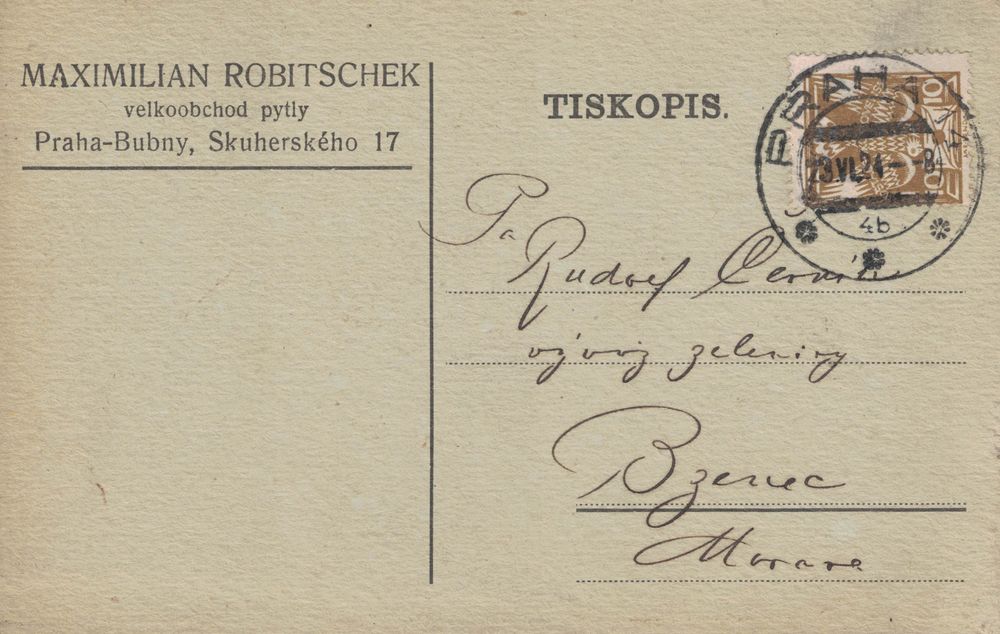 MAXIMILIAN ROBITSCHEK
velkoobchod pytly
Praha-Bubny, Skuherského 17
TISKOPIS.
PRAHA
VI.24
4b
10
10
Pa
Rudolf
vývoz zeleniny
Bzenec
Morava